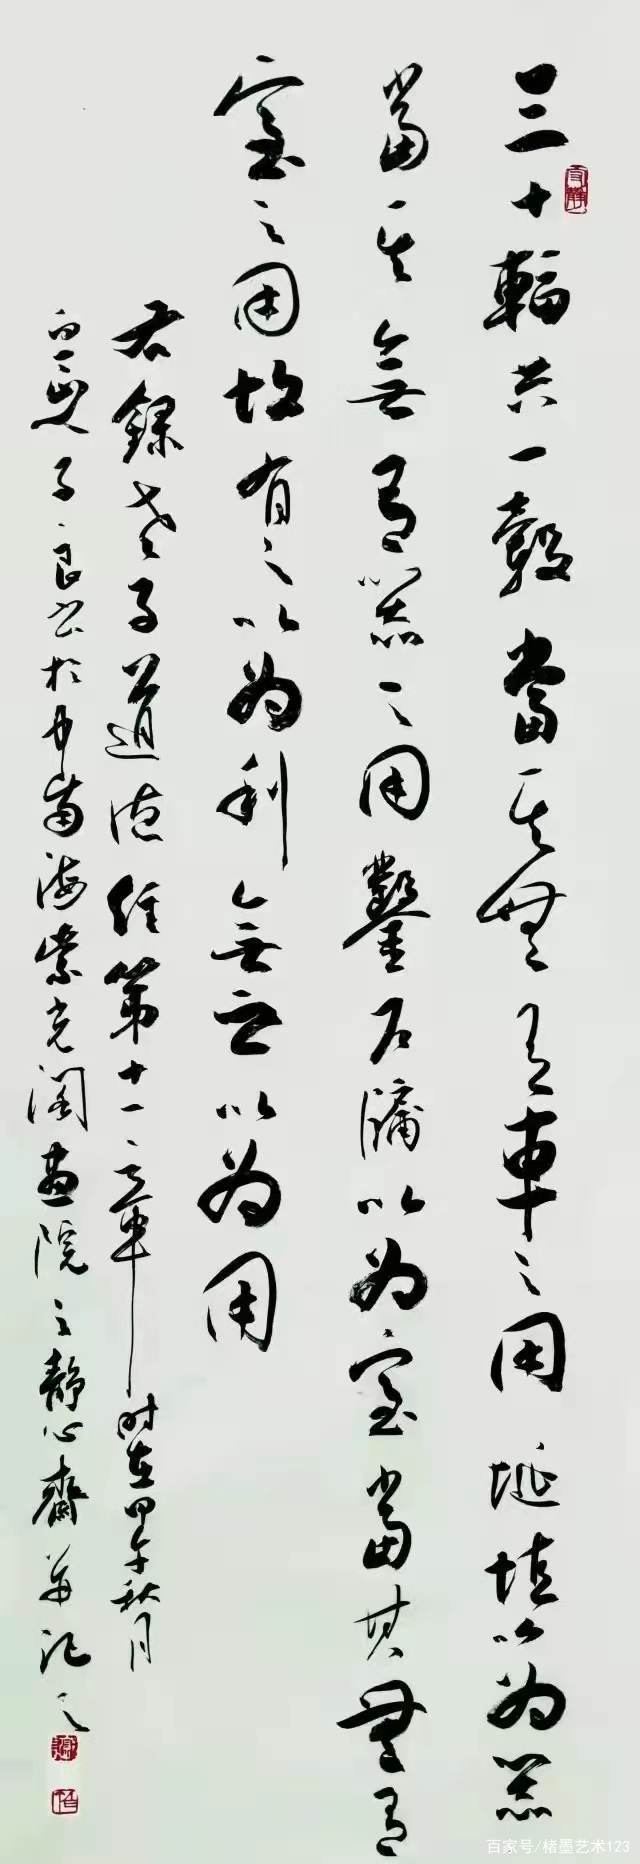 三十輻共一轂當其無有車之用埏埴以為器
當其無有器之用鑿戶牖以為室當其無有
室之用故有之以為利無之以為用
右錄老子道德經第十一章時在甲午秋月
子良書於中南海紫光閣畫院之靜心齋並記之
百家号/楮墨艺术123